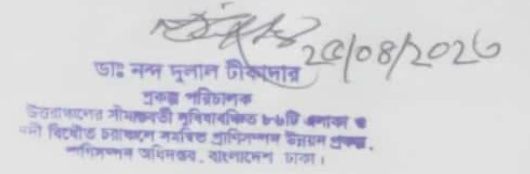 ২৫/০৪/২০২৩
ডাঃ নন্দ দুলাল টীকাদার
প্রকল্প পরিচালক
উত্তরাঞ্চলের সীমান্তবর্তী সুবিধাবঞ্চিত ৮৬টি এলাকা ও
নদী বিধৌত চরাঞ্চলে সমন্বিত প্রাণিসম্পদ উন্নয়ন প্রকল্প,
প্রাণিসম্পদ অধিদপ্তর, বাংলাদেশ ঢাকা।